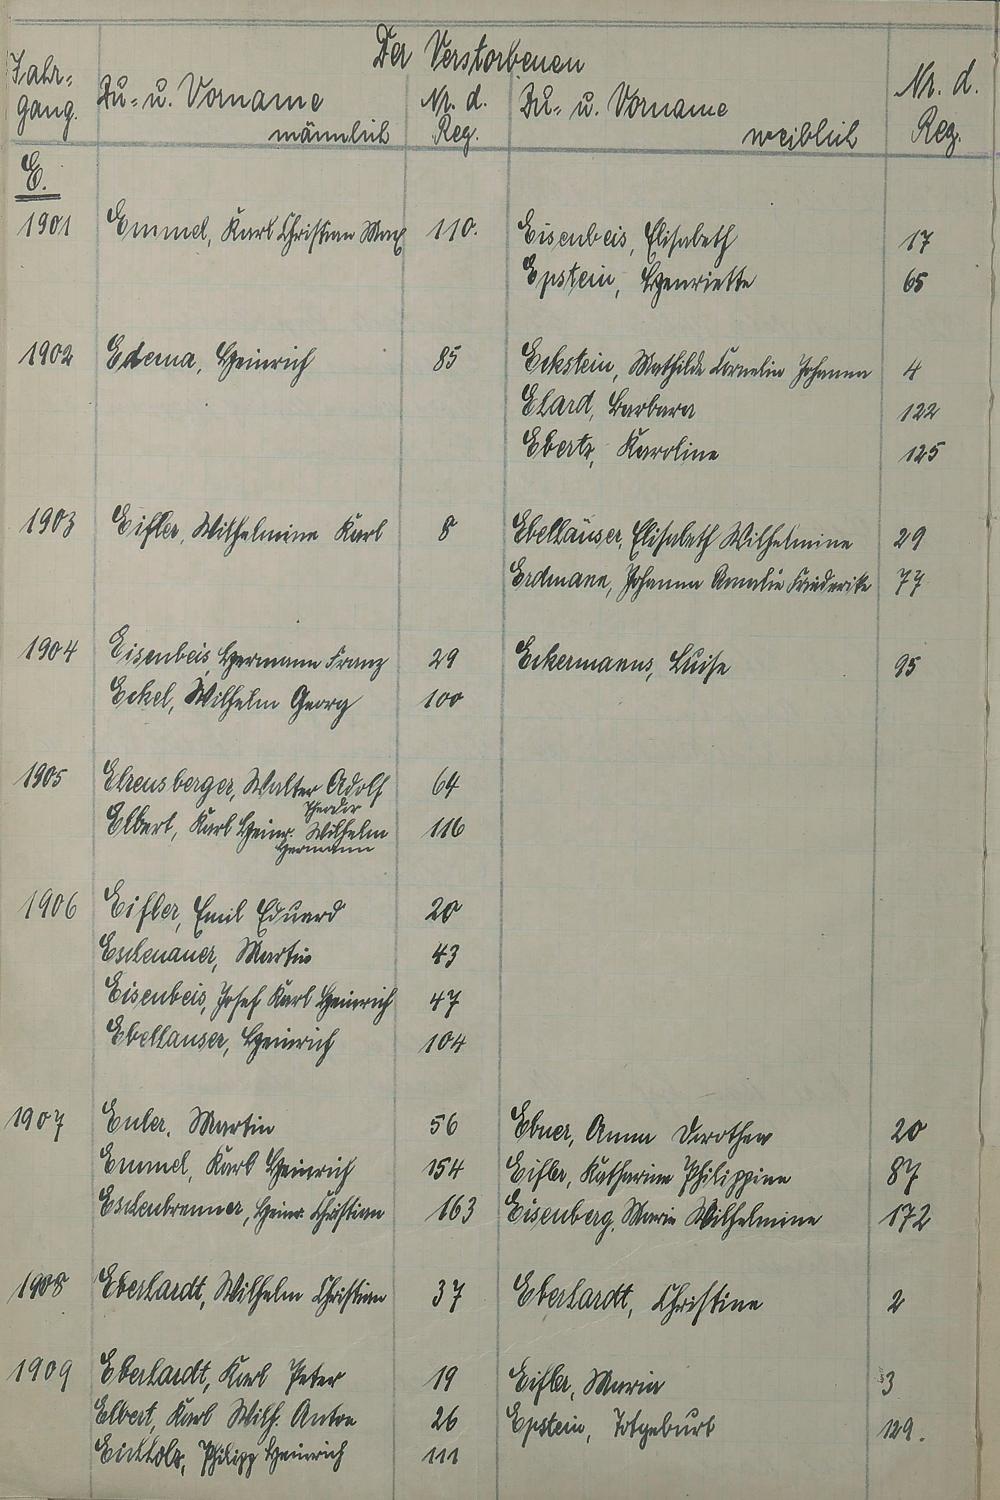 Der Verstorbenen
Jahr-
gang.
Zu- u. Vorname
männlich
Nr. d.
Reg.
Zu- u. Vorname
weiblich
Nr. d.
Reg.
E.
1901 Emmel, Karl Christian Max 110. Eisenbeis, Elisabeth 17
Epstein, Henriette 65
1902 Edema, Heinrich 85 Eckstein, Mathilde Cornelia Johanna 4
Ehard, Barbara 122
Ebertz, Karoline 125
1903 Eifler, Wilhelmine Karl 8 Ebelhäuser, Elisabeth Wilhelmine 29
Erdmann, Johanna Amalie Friederike 77
1904 Eisenbeis Hermann Franz 29 Eckermanns, Luise 95
Eckel, Wilhelm Georg 100
1905 Ehrensberger, Walter Adolf 64
Theodor
Elbert, Karl Heinr. Wilhelm 116
Hermann
1906 Eifler, Emil Eduard 20
Eschenauer, Martin 43
Eisenbeis, Josef Karl Heinrich 47
Ebelhauser, Heinrich 104
1907 Euler, Martin 56 Ebner, Anna Dorothea 20
Emmel, Karl Heinrich 154 Eifler, Katharina Philippine 87
Eschenbrenner, Heinr. Christian 163 Eisenberg, Marie Wilhelmine 172
1908 Eberhardt, Wilhelm Christian 37 Eberhardt, Christine 2
1909 Eberhardt, Karl Peter 19 Eifler, Maria 3
Elbert, Karl Wilh. Anton 26 Epstein, Totgeburt 129.
Eichholz, Philipp Heinrich 111